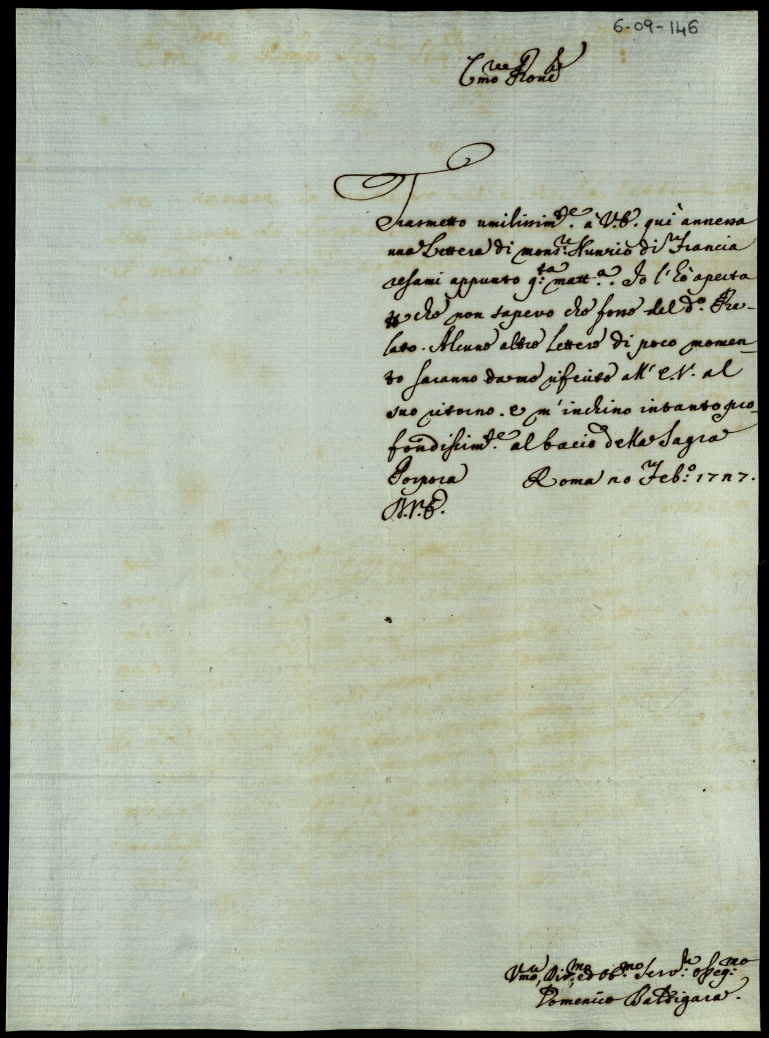 6-09-146
E.mo e R.mo Prone
Trasmetto umilissim.e à V.E. quì annessa
una Lettera di mons.r Nunzio di Francia
resami appunto q.ta matt.a. Io l'hò aperta
p che non sapevo che fosse del d.o Pre-
lato. Alcune altre Lettere di poco momen-
to saranno da me riferite all'E.V. al
suo ritorno. e m'inchino intanto pro-
fondissim.e al bacio della Sagra
Porpora Roma 20 Feb.o 1727.
D.V.E.
Um.o, Div.mo, ed Obb.mo Serv.re osseq.mo
Domenico Baldigara.